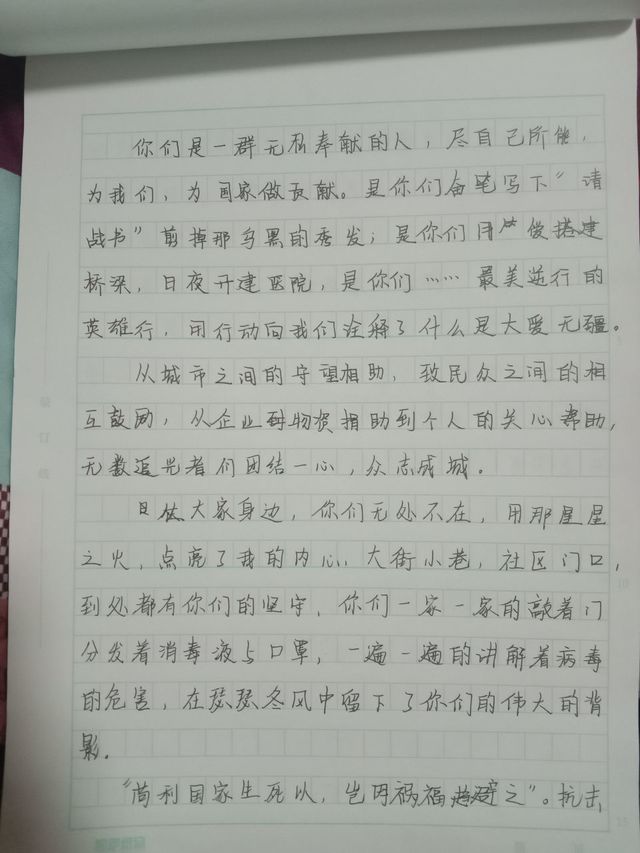 你们是一群无私奉献的人，尽自己所能，
为我们，为国家做贡献。是你们奋笔写下“请
战书”剪掉那乌黑的秀发；是你们用爱搭建
桥梁，日夜开建医院，是你们……最美逆行的
英雄行，用行动向我们诠释了什么是大爱无疆。
从城市之间的守望相助，致民众之间的相
互鼓励，从企业物资捐助到个人的关心帮助，
无数追光者们团结一心，众志成城。
大家身边，你们无处不在，用那星星
之火，点亮了我的内心，大街小巷，社区门口，
到处都有你们的坚守，你们一家一家的敲着门
分发着消毒液与口罩，一遍一遍的讲解着病毒
的危害，在瑟瑟冬风中留下了你们的伟大的背
影。
“苟利国家生死以，岂因祸福避之”。抗击